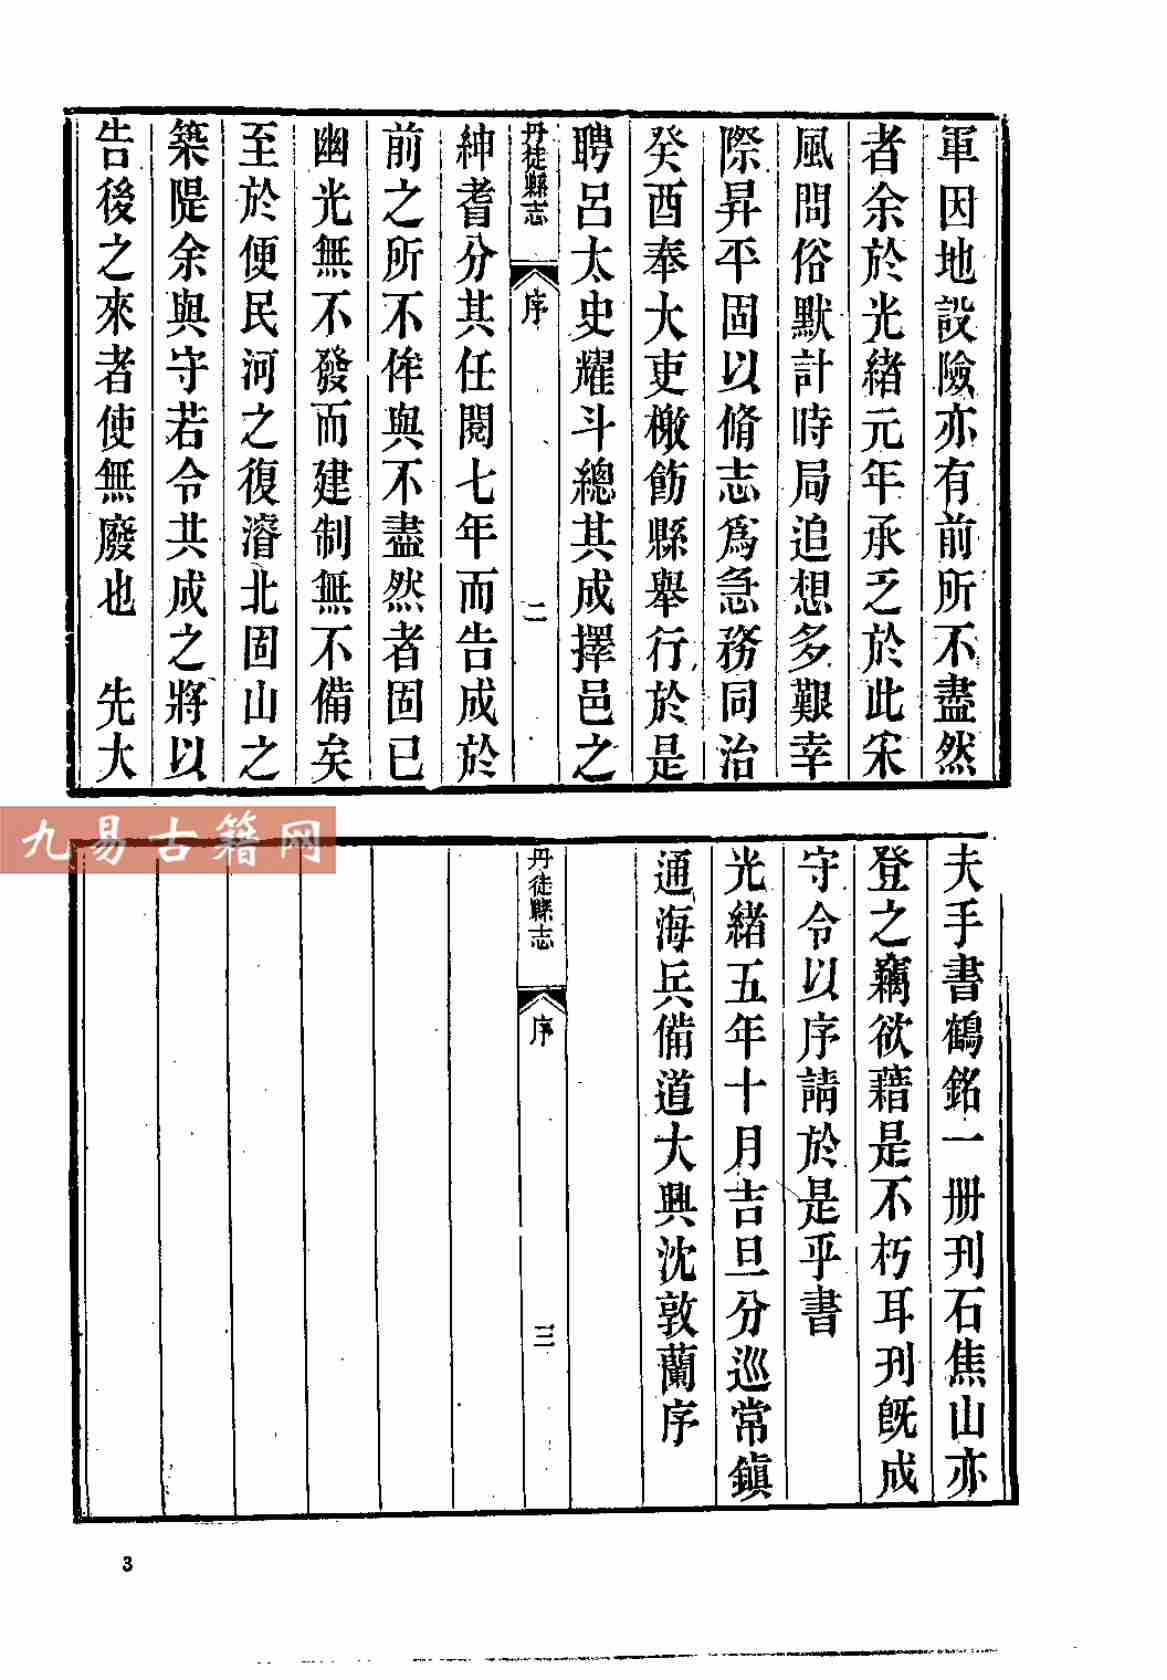 軍因地設險亦有前所不盡然
者余於光緒元年承乏於此宋
風問俗默計時局追想多艱幸
際昇平固以脩志爲急務同治
癸酉奉大吏檄飭縣舉行於是
聘呂太史耀斗總其成擇邑之
丹徒縣志 序 二
紳耆分其任閱七年而告成於
前之所不侔與不盡然者固已
幽光無不發而建制無不備矣
至於便民河之復濬北固山之
築隄余與守若令共成之將以
告後之來者使無廢也 先大
九易古籍网
夫手書鶴銘一册刋石焦山亦
登之竊欲藉是不朽耳刋旣成
守令以序請於是乎書
光緒五年十月吉旦分巡常鎮
通海兵備道大興沈敦蘭序
丹徒縣志 序 三
3